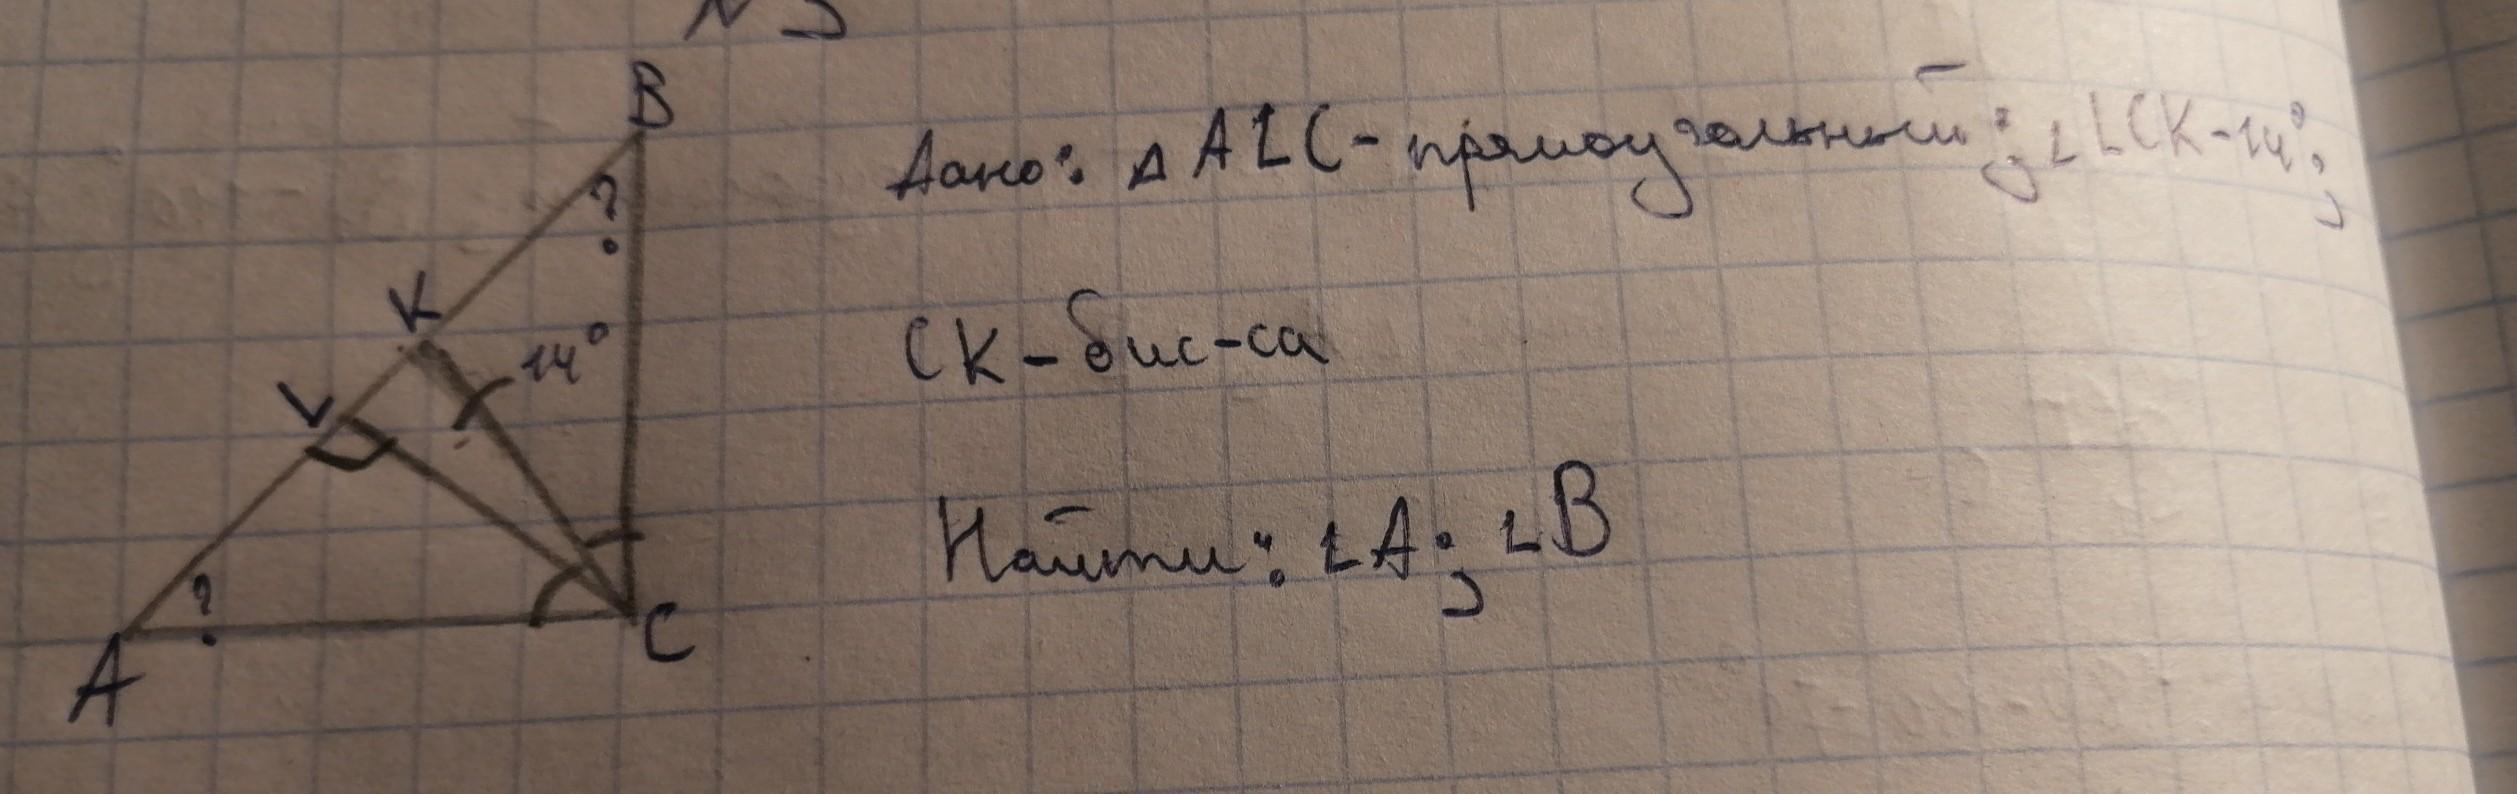 N 3
B
?
K
14°
L
?
A
C
Дано: △ ALC - прямоугольный; ∠LCK - 14°;
CK - бис-са
Найти: ∠A; ∠B